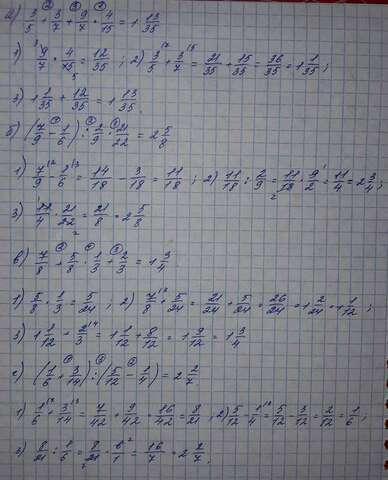 а) 3/5 + 3/7 + 9/7 · 4/15 = 1 13/35
1) 9/7 · 4/15 = 12/35 ; 2) 3/5 + 3/7 = 21/35 + 15/35 = 36/35 = 1 1/35 ;
3) 1 1/35 + 12/35 = 1 13/35 .
б) (7/9 - 1/6) : 2/9 · 21/22 = 2 5/8
1) 7/9 - 1/6 = 14/18 - 3/18 = 11/18 ; 2) 11/18 : 2/9 = 11/18 · 9/2 = 11/4 = 2 3/4 ;
3) 11/4 · 21/22 = 21/8 = 2 5/8
в) 7/8 + 5/8 · 1/3 + 2/3 = 1 3/4
1) 5/8 · 1/3 = 5/24 ; 2) 7/8 + 5/24 = 21/24 + 5/24 = 26/24 = 1 2/24 = 1 1/12 ;
3) 1 1/12 + 2/3 = 1 1/12 + 8/12 = 1 9/12 = 1 3/4
г) (1/6 + 3/14) : (5/12 - 1/4) = 2 2/7
1) 1/6 + 3/14 = 7/42 + 9/42 = 16/42 = 8/21 ; 2) 5/12 - 1/4 = 5/12 - 3/12 = 2/12 = 1/6 ;
3) 8/21 : 1/6 = 8/21 · 6/1 = 16/7 = 2 2/7 .